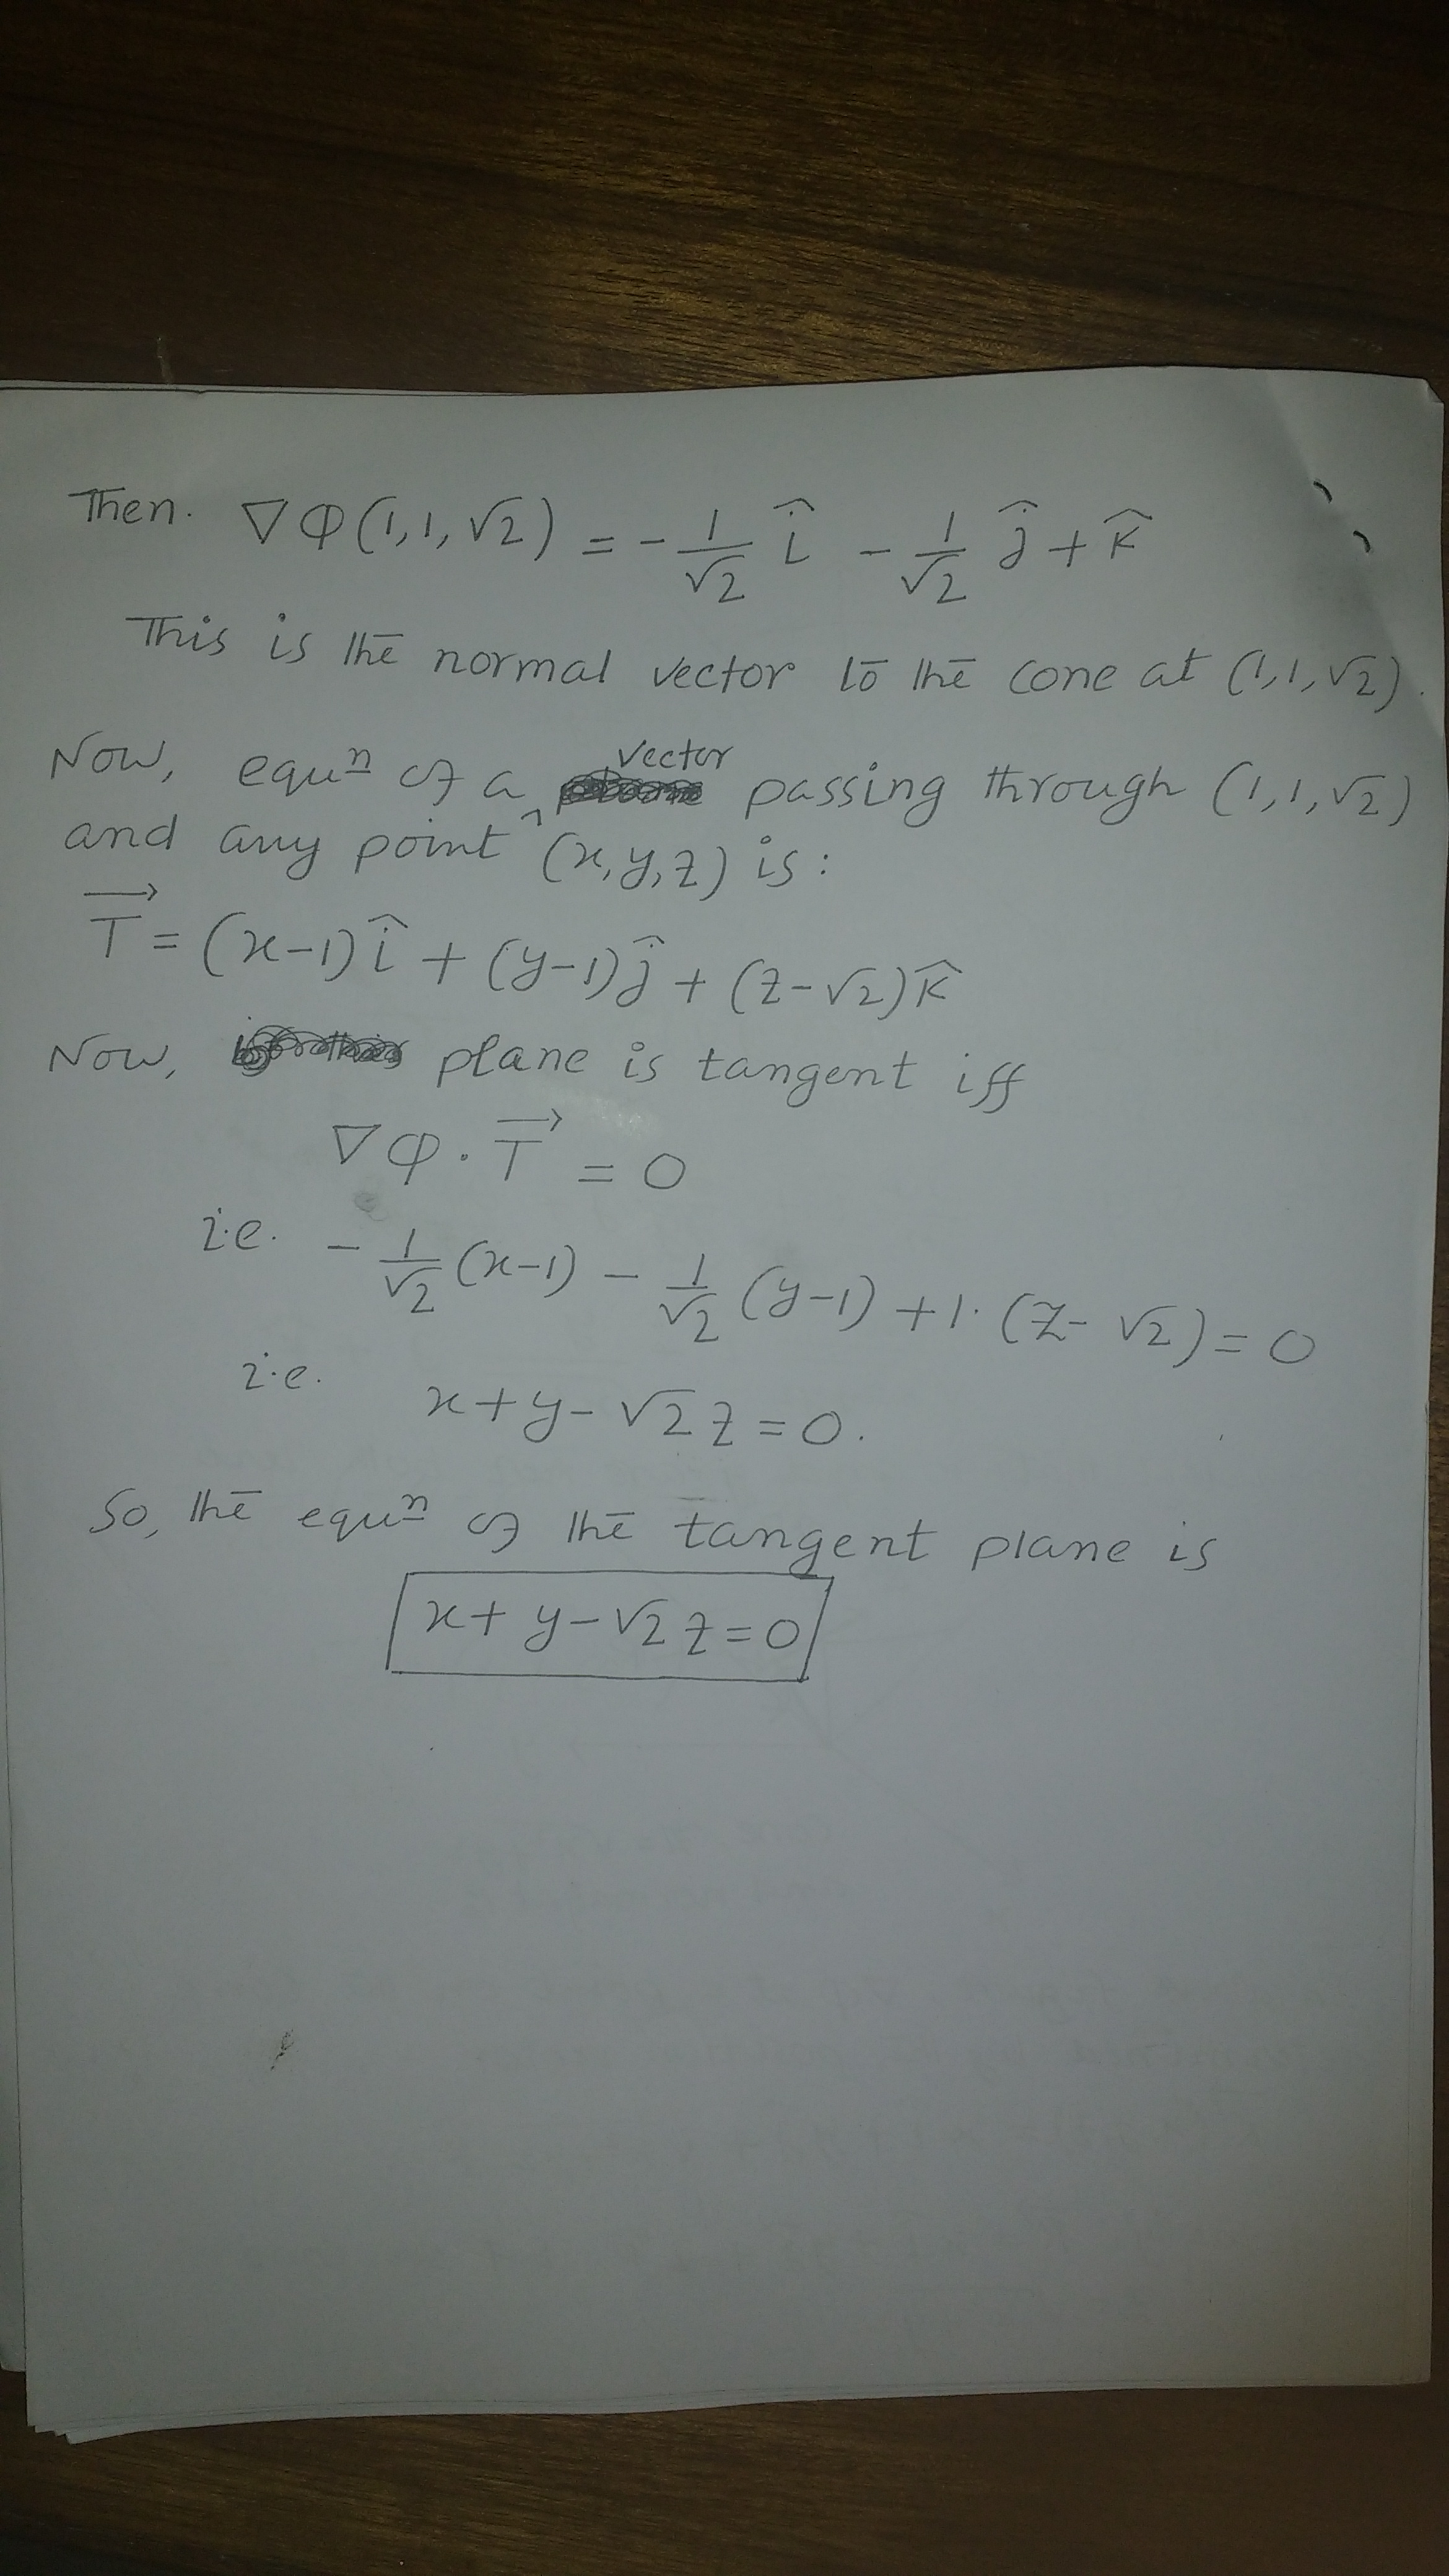 Then. ∇φ(1,1,√2) = -1/√2 î - 1/√2 ĵ + k̂
This is the normal vector to the cone at (1,1,√2).
Now, equⁿ of a vector passing through (1,1,√2)
and any point (x,y,z) is:
T⃗ = (x-1)î + (y-1)ĵ + (z-√2)k̂
Now, plane is tangent iff
∇φ · T⃗ = 0
i.e. -1/√2 (x-1) - 1/√2 (y-1) + 1·(z-√2) = 0
i.e. x+y-√2 z = 0.
So, the equⁿ of the tangent plane is
x+y-√2 z = 0